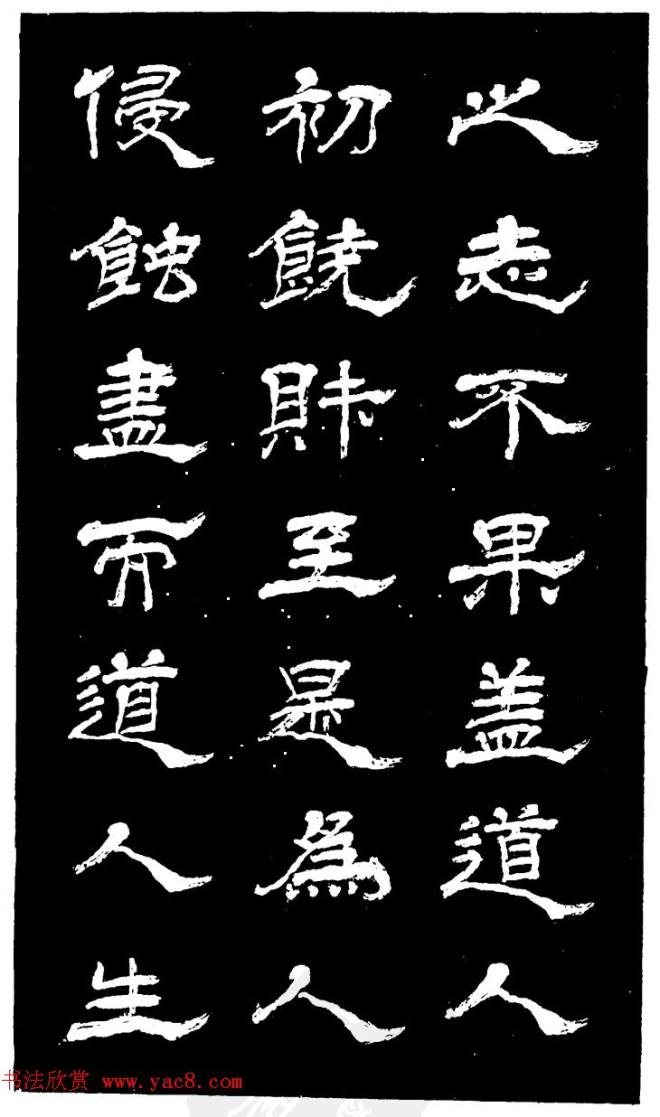 之志不果盖道人
初饒財至是為人
侵蝕盡而道人生
书法欣赏 www.yac8.com